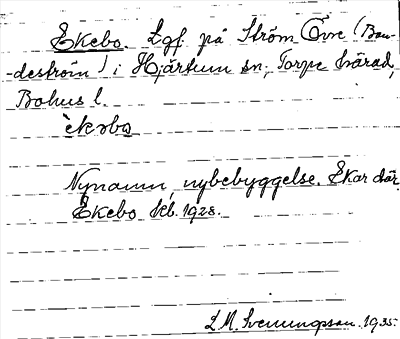 Ekebo. Lgf. på Ström Övre (Bon-
-deström) i Hjärtum sn; Torpe härad,
Bohus l.
ekəbo
Nynamn, nybebyggelse. Ekar där.
Ekebo kb. 1928.
L M. Svenungsson. 1935.